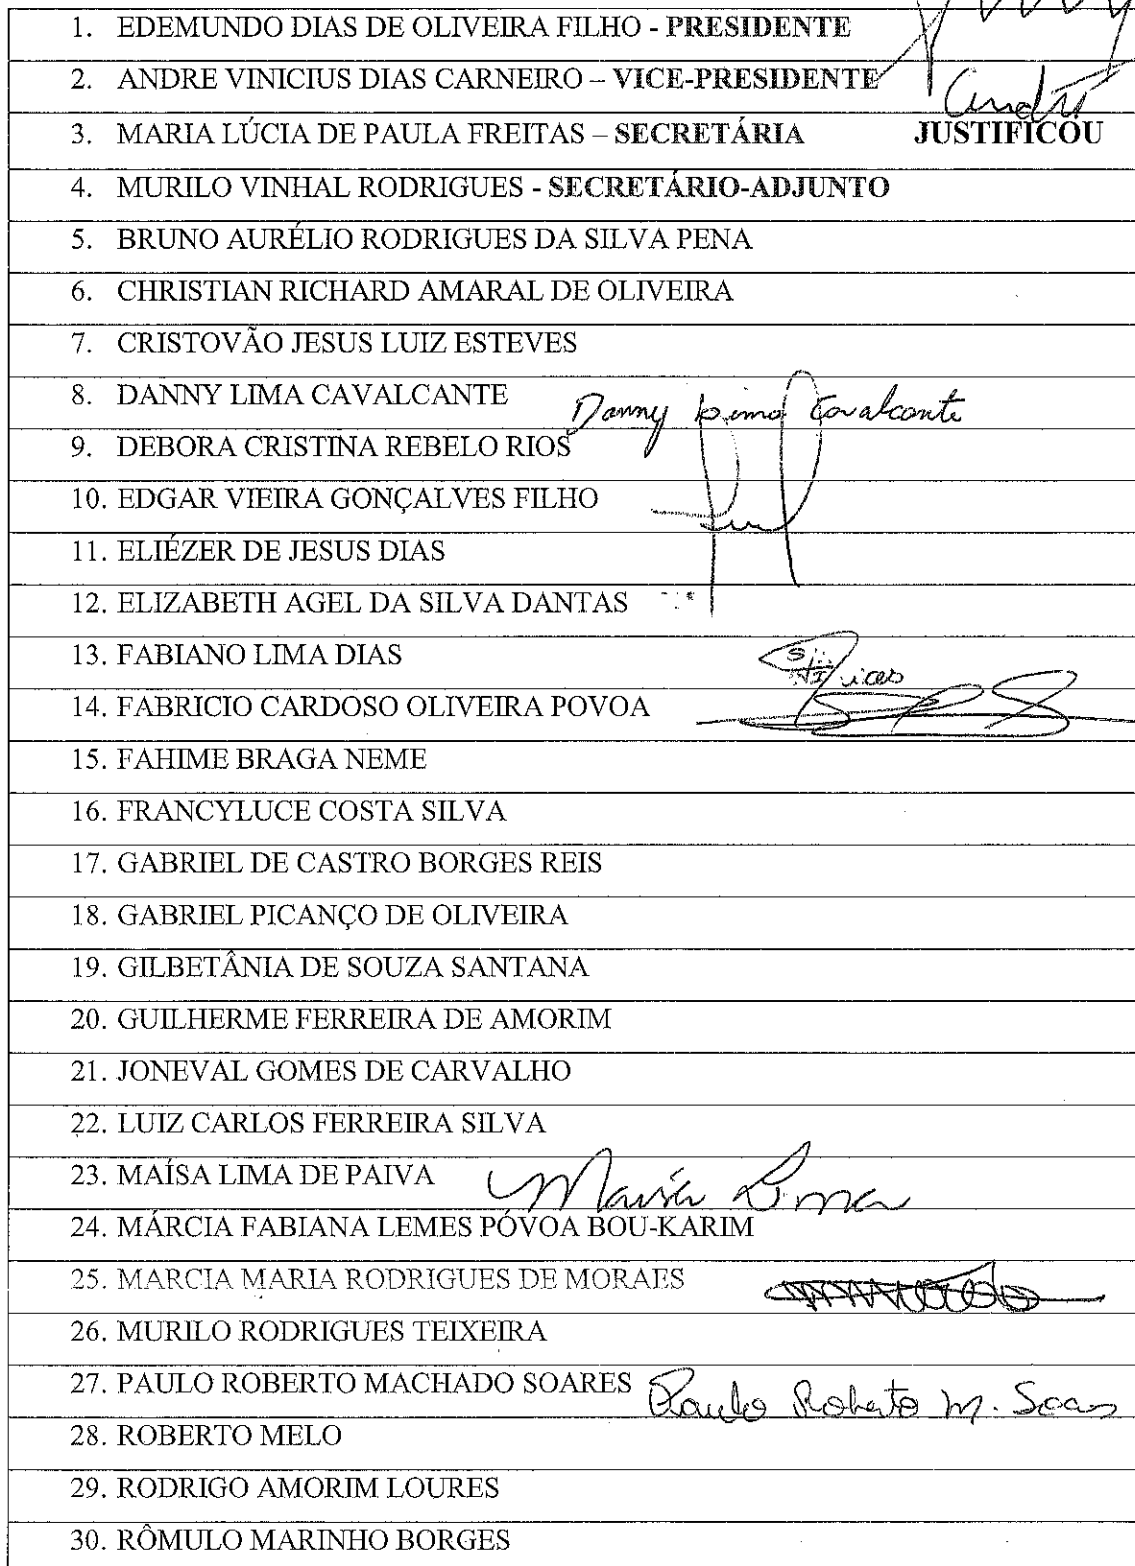 1. EDEMUNDO DIAS DE OLIVEIRA FILHO - PRESIDENTE
2. ANDRE VINICIUS DIAS CARNEIRO – VICE-PRESIDENTE André
3. MARIA LÚCIA DE PAULA FREITAS – SECRETÁRIA JUSTIFICOU
4. MURILO VINHAL RODRIGUES - SECRETÁRIO-ADJUNTO
5. BRUNO AURÉLIO RODRIGUES DA SILVA PENA
6. CHRISTIAN RICHARD AMARAL DE OLIVEIRA
7. CRISTOVÃO JESUS LUIZ ESTEVES
8. DANNY LIMA CAVALCANTE Danny Lima Cavalcante
9. DEBORA CRISTINA REBELO RIOS
10. EDGAR VIEIRA GONÇALVES FILHO
11. ELIÉZER DE JESUS DIAS
12. ELIZABETH AGEL DA SILVA DANTAS
13. FABIANO LIMA DIAS
14. FABRICIO CARDOSO OLIVEIRA POVOA
15. FAHIME BRAGA NEME
16. FRANCYLUCE COSTA SILVA
17. GABRIEL DE CASTRO BORGES REIS
18. GABRIEL PICANÇO DE OLIVEIRA
19. GILBETÂNIA DE SOUZA SANTANA
20. GUILHERME FERREIRA DE AMORIM
21. JONEVAL GOMES DE CARVALHO
22. LUIZ CARLOS FERREIRA SILVA
23. MAÍSA LIMA DE PAIVA Maísa Lima
24. MÁRCIA FABIANA LEMES PÓVOA BOU-KARIM
25. MARCIA MARIA RODRIGUES DE MORAES
26. MURILO RODRIGUES TEIXEIRA
27. PAULO ROBERTO MACHADO SOARES Paulo Roberto M. Soares
28. ROBERTO MELO
29. RODRIGO AMORIM LOURES
30. RÔMULO MARINHO BORGES